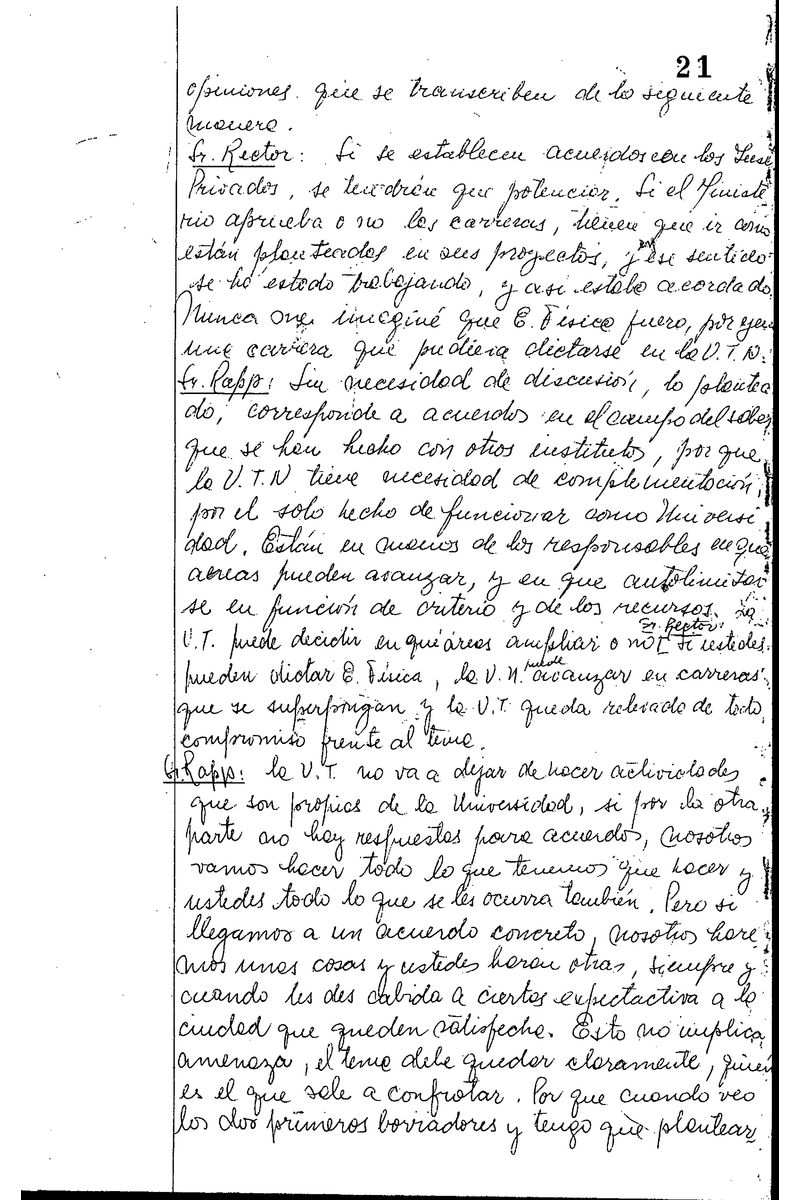 21
opiniones que se transcriben de la siguiente
manera.
Sr. Rector: Si se establecen acuerdos con los Inst
Privados, se tendrán que potenciar. Si el Ministe
rio aprueba o no las carreras, tienen que ir como
están planteados en sus proyectos, y en ese sentido
se ha estado trabajando, y asi estaba acordado
Nunca me imaginé que E. Física fuera, por ejem
una carrera que pudiera dictarse en la U.T.N.
Sr. Rapp: Sin necesidad de discusión, lo plantea
do, corresponde a acuerdos en el campo del saber
que se han hecho con otros institutos, por que
la U.T.N tiene necesidad de complementación,
por el solo hecho de funcionar como Universi
dad. Están en manos de los responsables en que
aereas pueden avanzar, y en que autolimitar
se en función de criterio y de los recursos. La
U.T. puede decidir en qué áreas ampliar o no. Sr. Rector: Si ustedes
pueden dictar E. Física, la U.N. puede avanzar en carreras
que se superpongan y la U.T. queda relevada de todo
compromiso frente al tema.
Sr. Rapp: la U.T. no va a dejar de hacer actividades
que son propias de la Universidad, si por la otra
parte no hay respuestas para acuerdos, nosotros
vamos hacer todo lo que tenemos que hacer y
ustedes todo lo que se les ocurra también. Pero si
llegamos a un acuerdo concreto, nosotros hare
mos unas cosas y ustedes harán otras, siempre y
cuando les des cabida a ciertas expectactiva a la
ciudad que queden satisfecha. Esto no implica
amenaza, el tema debe quedar claramente, quien
es el que sale a confrotar. Por que cuando veo
los dos primeros borradores y tengo que plantear